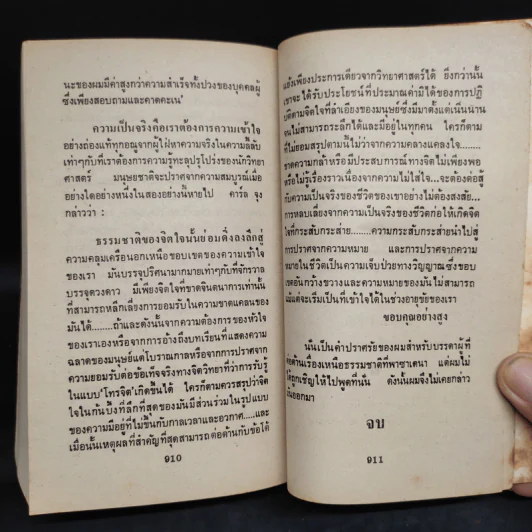 นะของผมมีค่าสูงกว่าความสำเร็จทั้งปวงของบุคคลผู้
ซึ่งเพียงสอบถามและคาดคะเน'
ความเป็นจริงคือเราต้องการความเข้าใจ
อย่างถ่องแท้ทุกอณูจากผู้ใฝ่หาความจริงในความลี้ลับ
เท่าๆกับที่เราต้องการความรู้ทะลุปรุโปร่งของนักวิทยา
ศาสตร์ มนุษยชาติจะปราศจากความสมบูรณ์เมื่อ
อย่างใดอย่างหนึ่งในสองอย่างนี้หายไป คาร์ล จุง
กล่าวว่า :
ธรรมชาติของจิตใจนั้นย่อมดิ่งลงลึกสู่
ความคลุมเครือนอกเหนือขอบเขตของความเข้าใจ
ของเรา มันบรรจุปริศนามากมายเท่าๆกับที่จักรวาล
บรรจุดวงดาว มีเพียงจิตใจที่ขาดจินตนาการเท่านั้น
ที่สามารถหลีกเลี่ยงการยอมรับในความขาดแคลนของ
มันได้........ถ้าและดังนั้นจากความต้องการของหัวใจ
ของเราเองหรือจากการอ้างถึงบทเรียนที่แสดงความ
ฉลาดของมนุษย์แต่โบราณกาลหรือจากการปราศจาก
ความยอมรับต่อข้อเท็จจริงทางจิตวิทยาที่ว่าการรับรู้
ในแบบ'โทรจิต'เกิดขึ้นได้ ใครก็ตามควรสรุปว่าจิต
ใจในก้นบึ้งที่ลึกที่สุดของมันมีส่วนร่วมในรูปแบบ
ของความมีอยู่ที่ไม่ขึ้นกับกาลเวลาและอวกาศ.....และ
เมื่อนั้นเหตุผลที่สำคัญที่สุดสามารถต่อต้านกับข้อโต้
910
แย้งเพียงประการเดียวจากวิทยาศาสตร์ได้ ยิ่งกว่านั้น
เขาจะได้รับประโยชน์ที่ประมาณค่ามิได้ของการปฏิ
บัติตามจิตใจที่ลำเอียงของมนุษย์ซึ่งมีมาตั้งแต่เนิ่นนาน
จนไม่สามารถระลึกได้และมีอยู่ในทุกคน ใครก็ตาม
ที่ไม่ยอมสรุปตามนี้ไม่ว่าจากความคลางแคลงใจ.....
ขาดความกล้าหรือมีประสบการณ์ทางจิตไม่เพียงพอ
หรือไม่รู้เรื่องราวเนื่องจากความไม่ใส่ใจ...จะต้องต่อสู้
กับความเป็นจริงของชีวิตของเขาอย่างไม่ต้องสงสัย...
การหลบเลี่ยงจากความเป็นจริงของชีวิตก่อให้เกิดจิต
ใจที่กระสับกระส่าย.......ความกระสับกระส่ายนำไปสู่
การปราศจากความหมาย และการปราศจากความ
หมายในชีวิตเป็นความเจ็บป่วยทางวิญญาณซึ่งขอบ
เขตอันกว้างขวางและความหมายของมันไม่สามารถ
แม้แต่จะเริ่มเป็นที่เข้าใจได้ในช่วงอายุขัยของเรา
ขอบคุณอย่างสูง
นั่นเป็นคำปราศรัยของผมสำหรับบรรดาผู้ที่
ต่อต้านเรื่องเหนือธรรมชาติที่พาซาเดนา แต่ผมไม่
ได้ถูกเชิญให้ไปพูดที่นั่น ดังนั้นผมจึงไม่เคยกล่าว
มันออกมา
จบ
911